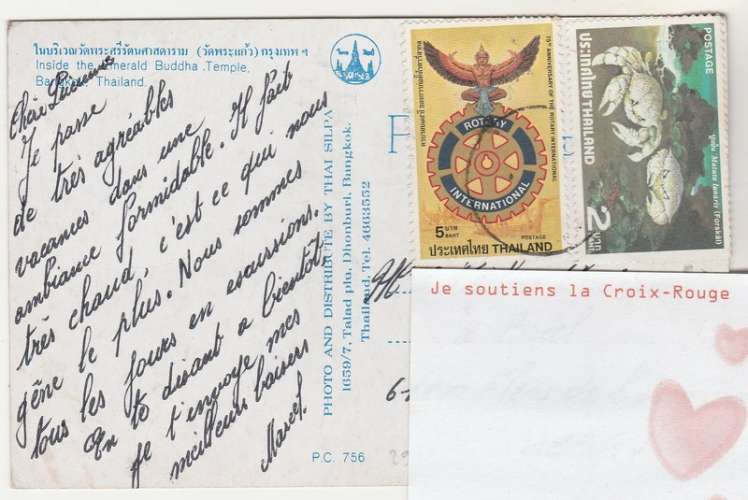 ในบริเวณวัดพระศรีรัตนศาสดาราม (วัดพระแก้ว) กรุงเทพ ฯ
Inside the Emerald Buddha Temple,
Bangkok, Thailand.
Chère
Je passe
de très agréables
vacances dans une
ambiance formidable. Il fait
très chaud, c'est ce qui nous
gêne le plus. Nous sommes
tous les jours en excursions.
En te disant a bientôt
je t'envoye mes
meilleurs baisers
Marcel.
PHOTO AND DISTRIBUTE BY THAI SILPA
1659/7, Talad plu, Dhonburi, Bangkok,
Thailand, Tel. 4663532
P.C. 756
75th ANNIVERSARY OF THE ROTARY INTERNATIONAL
ROTARY
INTERNATIONAL
5 บาท
BAHT
POSTAGE
ประเทศไทย THAILAND
POSTAGE
ประเทศไทย THAILAND
Matuta lunaris (Forskal)
2 บาท
BAHT
Je soutiens la Croix-Rouge